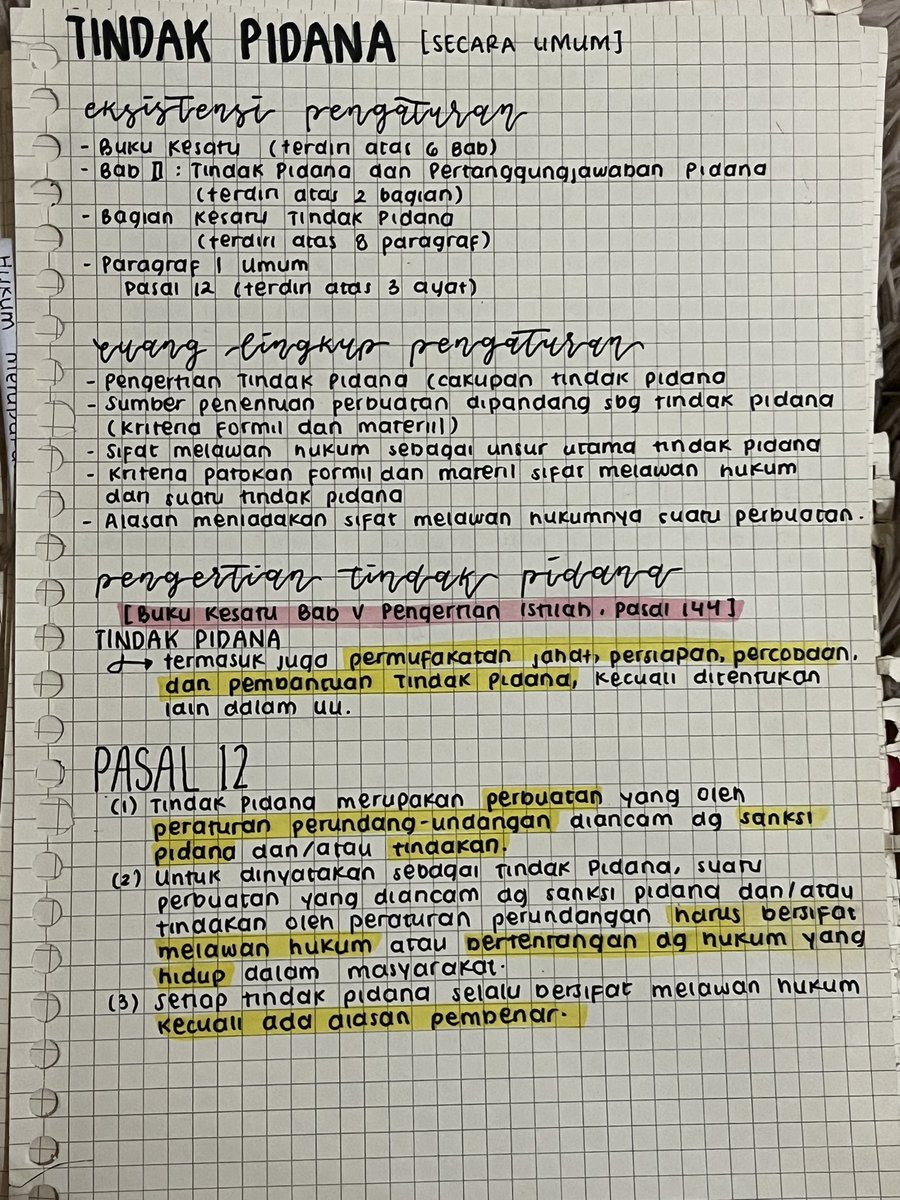 TINDAK PIDANA [SECARA UMUM]
eksistensi pengaturan
- Buku Kesatu (terdiri atas 6 Bab)
- Bab II : Tindak Pidana dan Pertanggungjawaban Pidana
(terdiri atas 2 bagian)
- Bagian Kesatu Tindak Pidana
(terdiri atas 8 paragraf)
- Paragraf 1 Umum
Pasal 12 (terdiri atas 3 ayat)
ruang lingkup pengaturan
- Pengertian Tindak Pidana (cakupan tindak pidana
- Sumber penentuan perbuatan dipandang sbg tindak pidana
(kriteria formil dan materiil)
- Sifat melawan hukum sebagai unsur utama tindak pidana
- Kriteria patokan formil dan materil sifat melawan hukum
dan suatu tindak pidana
- Alasan meniadakan sifat melawan hukumnya suatu perbuatan.
pengertian tindak pidana
[Buku Kesatu Bab V Pengertian Istilah. Pasal 144]
TINDAK PIDANA
→ termasuk juga permufakatan jahat, persiapan, percobaan,
dan pembantuan Tindak Pidana, kecuali ditentukan
lain dalam uu.
PASAL 12
(1) Tindak Pidana merupakan perbuatan yang oleh
peraturan perundang-undangan diancam dg sanksi
pidana dan/atau tindakan.
(2) Untuk dinyatakan sebagai Tindak Pidana, suatu
perbuatan yang diancam dg sanksi pidana dan/atau
tindakan oleh peraturan perundangan harus bersifat
melawan hukum atau bertentangan dg hukum yang
hidup dalam masyarakat.
(3) Setiap tindak pidana selalu bersifat melawan hukum
kecuali ada alasan pembenar.
Hukum